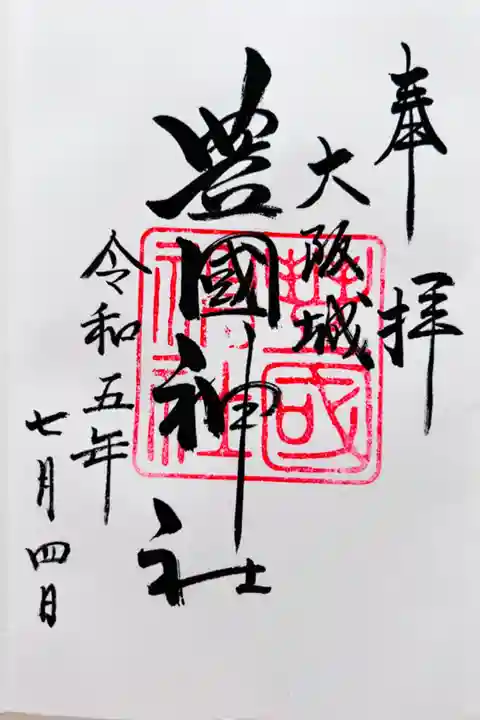 奉拝
大阪城
豊國神社
令和五年
七月四日
豊國
神社